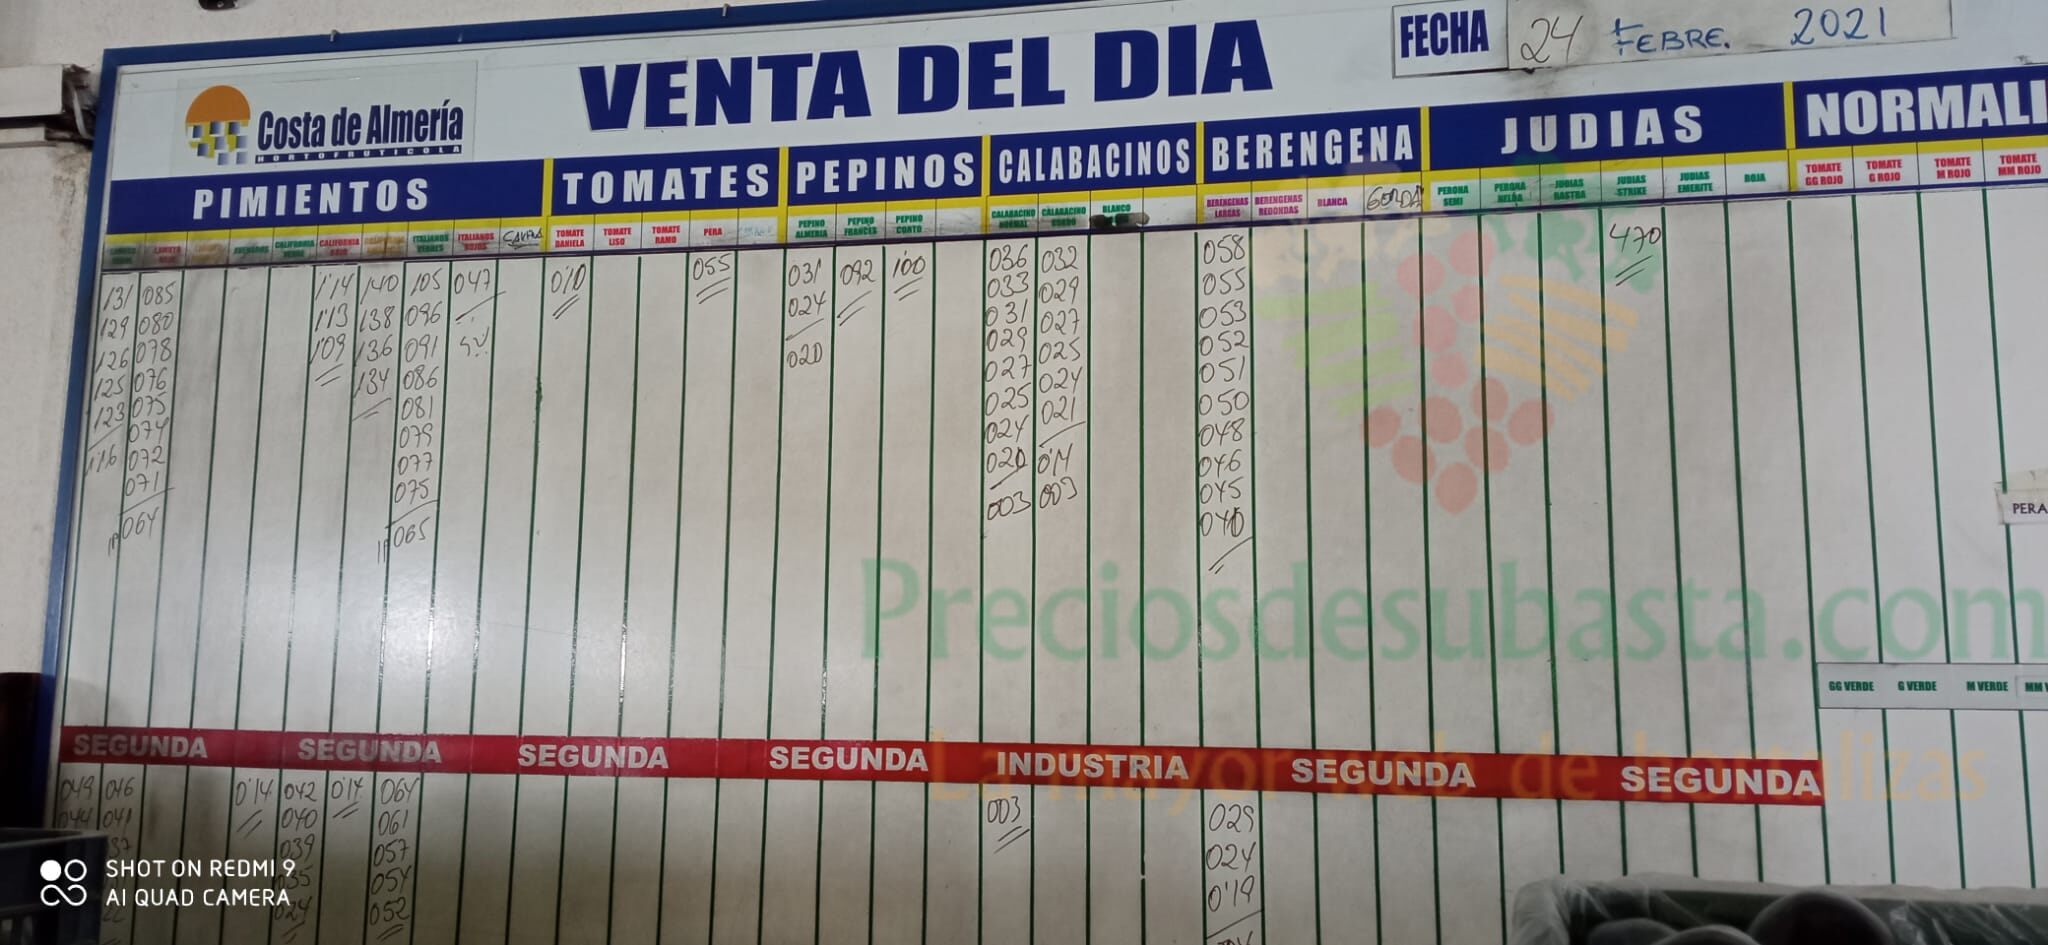 FECHA 24 FEBRE. 2021
VENTA DEL DIA
Costa de Almería
HORTOFRUTICOLA
PIMIENTOS TOMATES PEPINOS CALABACINOS BERENGENA JUDIAS NORMALI
CALIFORNIA ITALIANOS VERDES ITALIANOS ROJOS
TOMATE DANIELA TOMATE LISO TOMATE RAMO PERA
PEPINO ALMERIA PEPINO FRANCES PEPINO CORTO
CALABACINO NORMAL CALABACINO GORDO BLANCO
BERENGENAS LARGAS BERENGENAS REDONDAS BLANCA GORDA
PERONA SEMI PERONA NELDA JUDIAS RASTRA JUDIAS STRIKE JUDIAS EMERITE ROJA
TOMATE GG ROJO TOMATE G ROJO TOMATE M ROJO TOMATE MM ROJO
131 085 1'14 140 105 047 010 055 031 092 100 036 032 058 470
129 080 1'13 138 096 024 033 029 055
126 078 109 136 091 020 031 027 053
125 076 134 086 029 025 052
123 075 081 027 024 051
116 074 079 025 021 050
072 077 024 0'14 048
071 075 020 003 046
064 065 003 045
040
PERA
Preciosdesubasta.com
La mayor web de hortalizas
GG VERDE G VERDE M VERDE MM
SEGUNDA SEGUNDA SEGUNDA SEGUNDA INDUSTRIA SEGUNDA SEGUNDA
049 046 0'14 042 0'14 064 003 029
044 041 040 061 024
039 057 0'19
054
024 052
SHOT ON REDMI 9
AI QUAD CAMERA